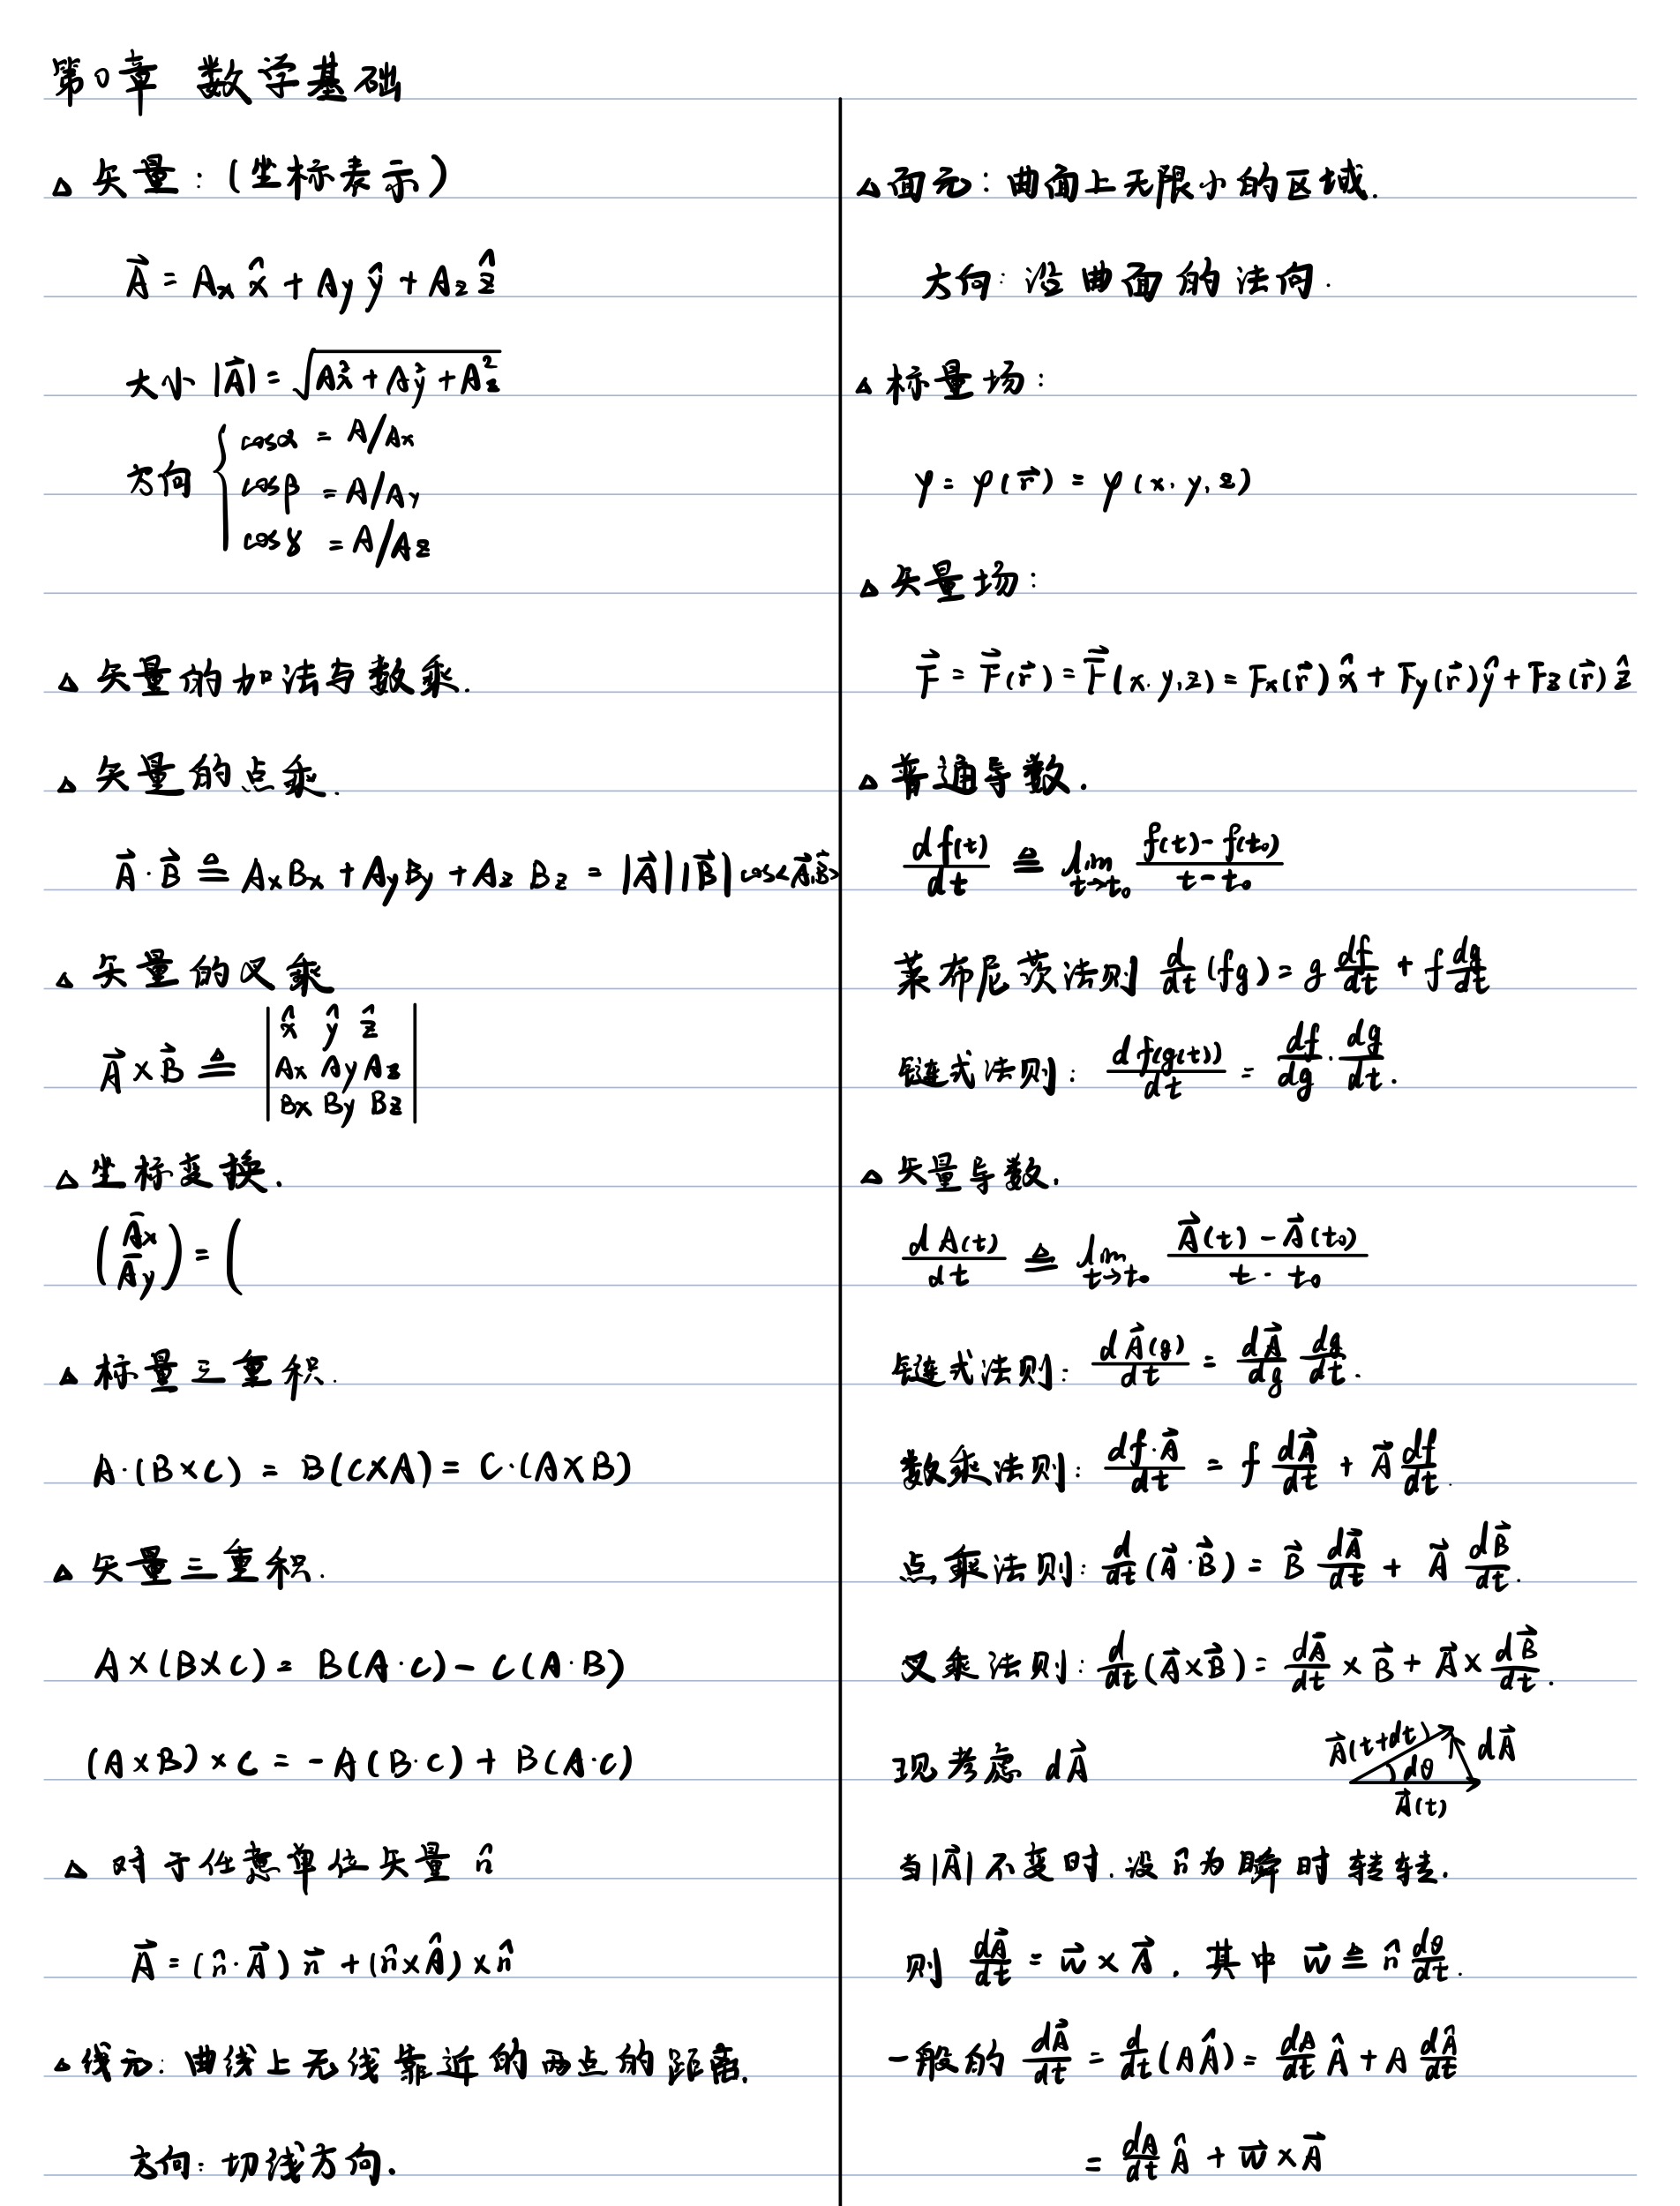 第0章 数学基础
△ 矢量：(坐标表示)
$\vec{A} = A_x \hat{x} + A_y \hat{y} + A_z \hat{z}$
大小 $|\vec{A}| = \sqrt{A_x^2 + A_y^2 + A_z^2}$
方向 { cosα = A/Ax
cosβ = A/Ay
cosγ = A/Az
△ 矢量的加法与数乘.
△ 矢量的点乘.
$\vec{A} \cdot \vec{B} \triangleq A_x B_x + A_y B_y + A_z B_z = |\vec{A}||\vec{B}| \cos<\vec{A}, \vec{B}>$
△ 矢量的叉乘
$\vec{A} \times \vec{B} \triangleq \begin{vmatrix} \hat{x} & \hat{y} & \hat{z} \\ A_x & A_y & A_z \\ B_x & B_y & B_z \end{vmatrix}$
△ 坐标变换.
$\begin{pmatrix} \bar{A}_x \\ \bar{A}_y \end{pmatrix} = ($
△ 标量三重积.
A·(B×C) = B(C×A) = C·(A×B)
△ 矢量三重积.
A×(B×C) = B(A·C) − C(A·B)
(A×B)×C = −A(B·C) + B(A·C)
△ 对于任意单位矢量 $\hat{n}$
$\vec{A} = (\hat{n} \cdot \vec{A}) \vec{n} + (\hat{n} \times \hat{A}) \times \hat{n}$
△ 线元：曲线上无线靠近的两点的距离.
方向：切线方向.
△ 面元：曲面上无限小的区域.
方向：沿曲面的法向.
△ 标量场：
$\varphi = \varphi(\vec{r}) = \varphi(x, y, z)$
△ 矢量场：
$\vec{F} = \vec{F}(\vec{r}) = \vec{F}(x, y, z) = F_x(\vec{r}) \hat{x} + F_y(\vec{r}) \hat{y} + F_z(\vec{r}) \hat{z}$
△ 普通导数.
$\frac{df(t)}{dt} \triangleq \lim_{t \to t_0} \frac{f(t) - f(t_0)}{t - t_0}$
莱布尼茨法则 $\frac{d}{dt}(fg) = g \frac{df}{dt} + f \frac{dg}{dt}$
链式法则：$\frac{df(g(t))}{dt} = \frac{df}{dg} \cdot \frac{dg}{dt}.$
△ 矢量导数.
$\frac{dA(t)}{dt} \triangleq \lim_{t \to t_0} \frac{\vec{A}(t) - \vec{A}(t_0)}{t - t_0}$
链式法则：$\frac{d\vec{A}(g)}{dt} = \frac{d\vec{A}}{dg} \frac{dg}{dt}.$
数乘法则：$\frac{df \cdot \vec{A}}{dt} = f \frac{d\vec{A}}{dt} + \vec{A} \frac{df}{dt}.$
点乘法则：$\frac{d}{dt}(\vec{A} \cdot \vec{B}) = \vec{B} \frac{d\vec{A}}{dt} + \vec{A} \frac{d\vec{B}}{dt}.$
叉乘法则：$\frac{d}{dt}(\vec{A} \times \vec{B}) = \frac{d\vec{A}}{dt} \times \vec{B} + \vec{A} \times \frac{d\vec{B}}{dt}.$
现考虑 $d\vec{A}$
$\vec{A}(t+dt)$ $d\vec{A}$
dθ
$\vec{A}(t)$
当$|\vec{A}|$不变时.设$\hat{n}$为瞬时转转.
则 $\frac{d\vec{A}}{dt} = \vec{w} \times \vec{A}$ . 其中 $\vec{w} \triangleq \hat{n} \frac{d\theta}{dt}.$
一般的 $\frac{d\vec{A}}{dt} = \frac{d}{dt}(A\hat{A}) = \frac{dA}{dt} \hat{A} + A \frac{d\hat{A}}{dt}$
$= \frac{dA}{dt} \hat{A} + \vec{w} \times \vec{A}$